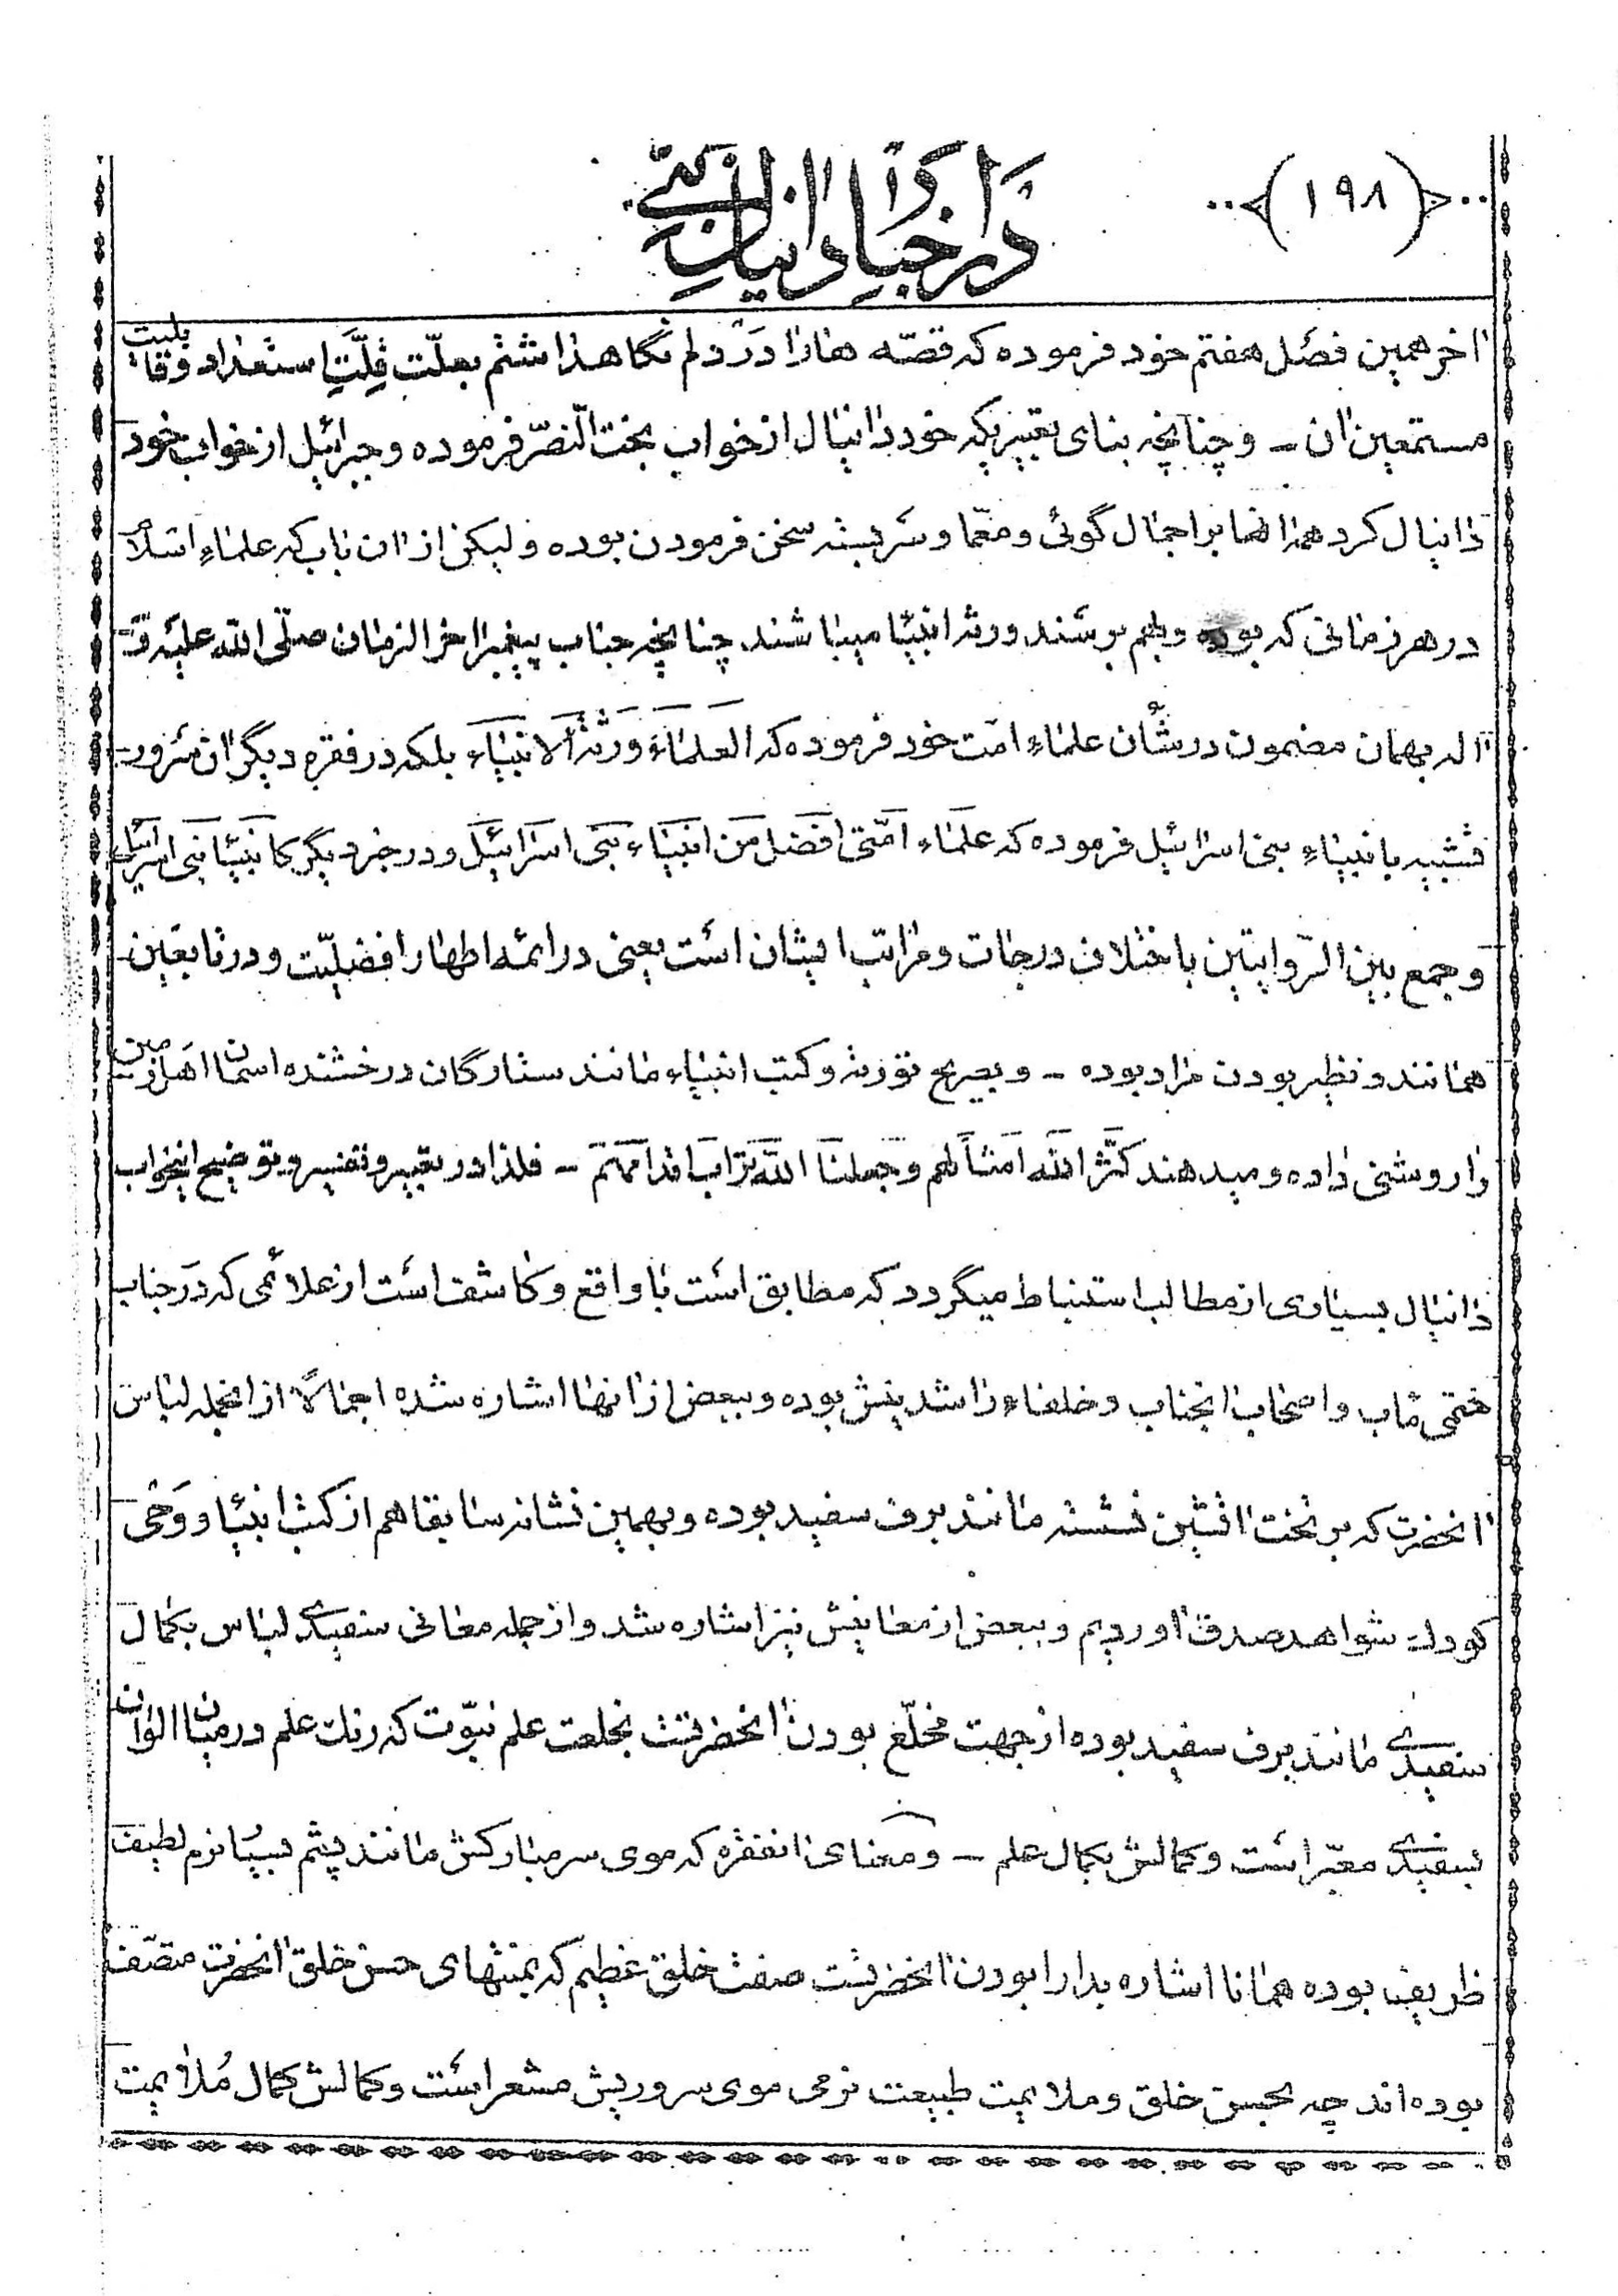 (۱۹۸)
در اخبار دانیال
اخر همین فصل هفتم خود فرموده که قصّه ها را در دلم نگاهداشتم بعلّت قلّت استعداد و قابلیت
مستمعین ان – و چنانچه بنای تعبیریکه خود دانیال از خواب بخت النّصر فرموده و جبرائیل از خواب خود
دانیال کرد همانا بر اجمال گوئی و معّما و سربسته سخن فرمودن بوده و لیکن از ان باب که علماء اسلام
در هر زمانی که بوده و بهم برسند ورثه انبیا میباشند چنانچه جناب پیغمبر اخر الزمان صلّی الله علیه و
اله بهمان مضمون در شأن علماء امّت خود فرموده که العلماء ورثة الانبیاء بلکه در فقره دیگر ان سرور
تشبیه بانبیاء بنی اسرائیل فرموده که علماء امّتی افضل من انبیاء بنی اسرائیل و در خبر دیگر کانبیا بنی اسرائیل
و جمع بین الرّوایتین باختلاف درجات و مراتب ایشان است یعنی در ائمه اطهار افضلیّت و در تابعین
همانند و نظیر بودن مراد بوده – و بصریح توریة و کتب انبیاء مانند ستارگان درخشنده اسمان اهل زمین
را روشنی داده و میدهند کثّر الله امثالهم و جعلنا الله تراب اقدامهم – فلذا در تعبیر و تفسیر و توضیح اینخواب
دانیال بسیاری از مطالب استنباط میگردد که مطابق است با واقع و کاشف است از علائمی که در جناب
ختمی ماب و اصحاب انجناب و خلفاء راشدینش بوده و ببعض از انها اشاره شده اجمالاً از انجمله لباس
انحضرت که بر تخت اتشین نشسته مانند برف سفید بوده و بهمین نشانه سابقا هم از کتب انبیا و وحی
کودک شواهد صدق اوردیم و ببعض از معانیش نیز اشاره شد و از جمله معانی سفیدی لباس بکمال
سفیدی مانند برف سفید بوده از جهت مخلّع بودن انحضرتست بخلعت علم نبوّت که رنک علم در میان الوان
بسفیدی معبّر است و کمالش بکمال علم – و معنای انفقره که موی سر مبارکش مانند پشم بسیا نرم لطیف
ظریف بوده همانا اشاره بدارا بودن انحضرتست صفت خلق عظیم که بمنتهای حسن خلق انحضرت متصّف
بوده‌اند چه بحسن خلق و ملایمت طبیعت نرمی موی سر و ریش مشعر است و کمالش بکمال ملایمت